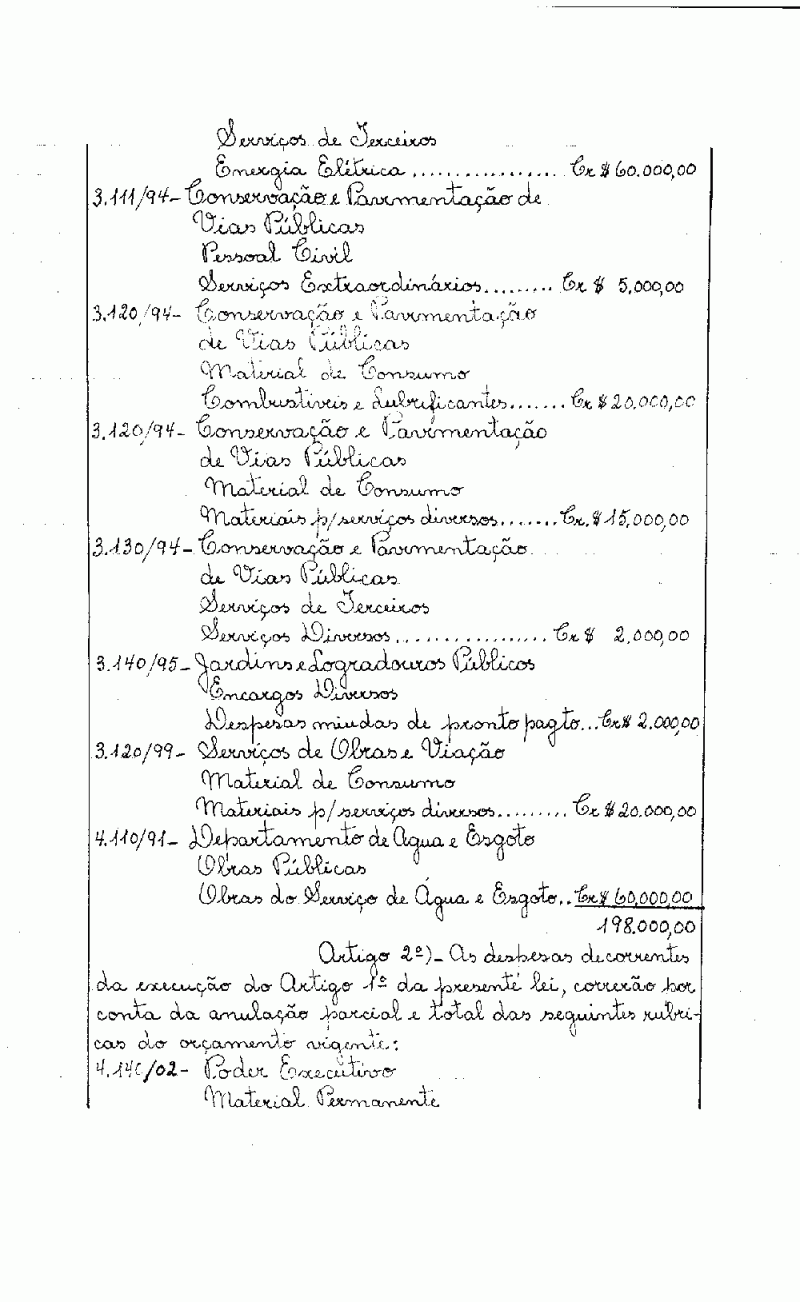 Serviços de Terceiros
Energia Elétrica ................. Cr$ 60.000,00
3.111/94- Conservação e Pavimentação de
Vias Públicas
Pessoal Civil
Serviços Extraordinários......... Cr$ 5.000,00
3.120/94- Conservação e Pavimentação
de Vias Públicas
Material de Consumo
Combustiveis e Lubrificantes....... Cr$ 20.000,00
3.120/94- Conservação e Pavimentação
de Vias Públicas
Material de Consumo
Materiais p/serviços diversos.......Cr.$ 15.000,00
3.130/94- Conservação e Pavimentação
de Vias Públicas
Serviços de Terceiros
Serviços Diversos................. Cr$ 2.000,00
3.140/95- Jardins e Logradouros Públicos
Encargos Diversos
Despesas miudas de pronto pagto...Cr$ 2.000,00
3.120/99- Serviços de Obras e Viação
Material de Consumo
Materiais p/serviços diversos......... Cr$ 20.000,00
4.110/91- Departamento de Agua e Esgoto
Obras Públicas
Obras do Serviço de Água e Esgoto.. Cr$ 60.000,00
198.000,00
Artigo 2º)- As despesas decorrentes
da execução do Artigo 1º da presente lei, correrão por
conta da anulação parcial e total das seguintes rubri-
cas do orçamento vigente:
4.140/02- Poder Executivo
Material Permanente